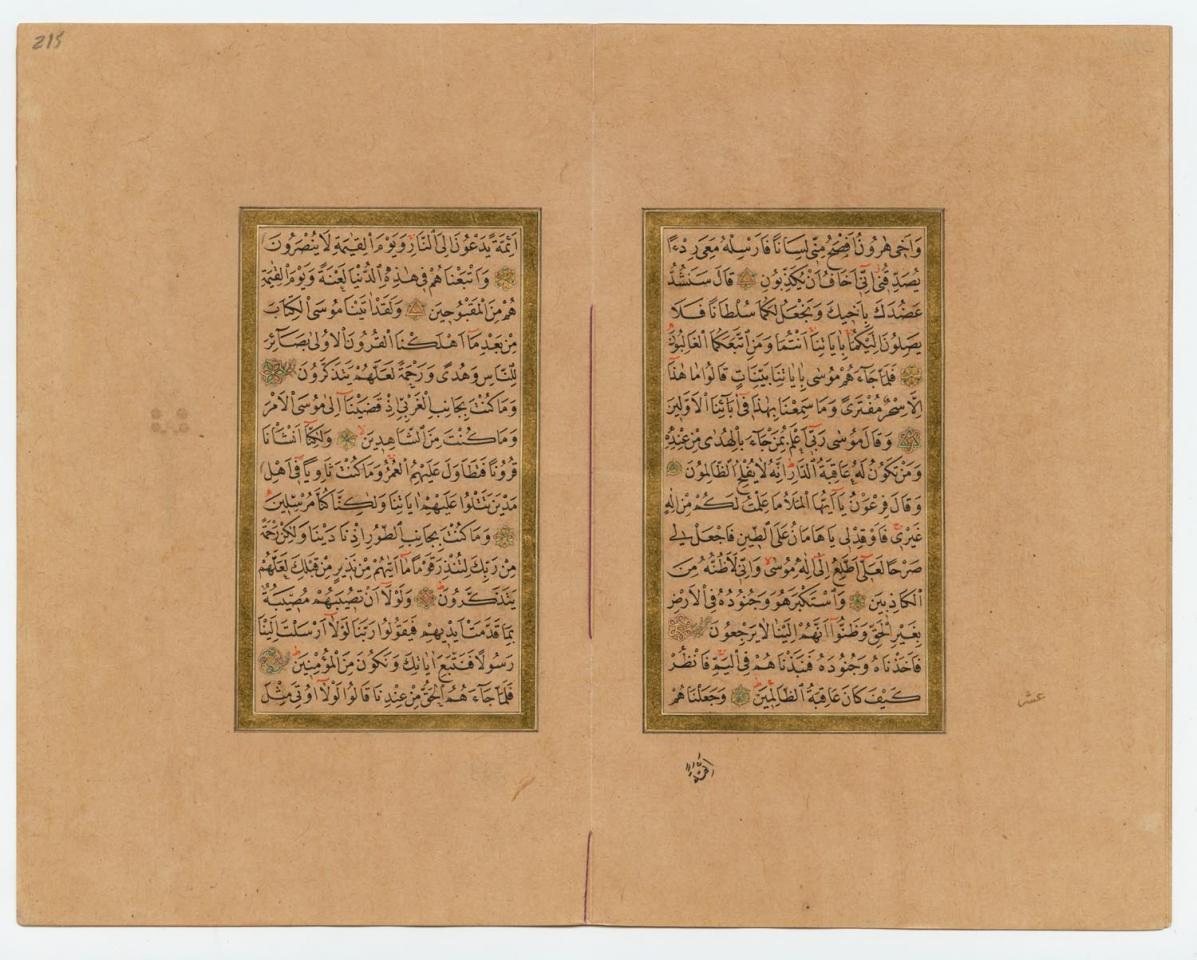 وَاَخٖى هٰرُونُ اَفْصَحُ مِنّٖى لِسَانًا فَاَرْسِلْهُ مَعِىَ رِدْءًا
يُصَدِّقُنٖى اِنّٖى اَخَافُ اَنْ يُكَذِّبُونِ قَالَ سَنَشُدُّ
عَضُدَكَ بِاَخٖيكَ وَنَجْعَلُ لَكُمَا سُلْطَانًا فَلَا
يَصِلُونَ اِلَيْكُمَا بِاٰيَاتِنَا اَنْتُمَا وَمَنِ اتَّبَعَكُمَا الْغَالِبُونَ
فَلَمَّا جَاءَهُمْ مُوسٰى بِاٰيَاتِنَا بَيِّنَاتٍ قَالُوا مَا هٰذَا
اِلَّا سِحْرٌ مُفْتَرًى وَمَا سَمِعْنَا بِهٰذَا فٖى اٰبَائِنَا الْاَوَّلٖينَ
وَقَالَ مُوسٰى رَبّٖى اَعْلَمُ بِمَنْ جَاءَ بِالْهُدٰى مِنْ عِنْدِهٖ
وَمَنْ تَكُونُ لَهُ عَاقِبَةُ الدَّارِ اِنَّهُ لَا يُفْلِحُ الظَّالِمُونَ
وَقَالَ فِرْعَوْنُ يَا اَيُّهَا الْمَلَأُ مَا عَلِمْتُ لَكُمْ مِنْ اِلٰهٍ
غَيْرٖى فَاَوْقِدْ لٖى يَا هَامَانُ عَلَى الطّٖينِ فَاجْعَلْ لٖى
صَرْحًا لَعَلّٖى اَطَّلِعُ اِلٰى اِلٰهِ مُوسٰى وَاِنّٖى لَاَظُنُّهُ مِنَ
الْكَاذِبٖينَ وَاسْتَكْبَرَ هُوَ وَجُنُودُهُ فِى الْاَرْضِ
بِغَيْرِ الْحَقِّ وَظَنُّوا اَنَّهُمْ اِلَيْنَا لَا يُرْجَعُونَ
فَاَخَذْنَاهُ وَجُنُودَهُ فَنَبَذْنَاهُمْ فِى الْيَمِّ فَانْظُرْ
كَيْفَ كَانَ عَاقِبَةُ الظَّالِمٖينَ وَجَعَلْنَاهُمْ
اَئِمَّةً
عشر
215
اَئِمَّةً يَدْعُونَ اِلَى النَّارِ وَيَوْمَ الْقِيٰمَةِ لَا يُنْصَرُونَ
وَاَتْبَعْنَاهُمْ فٖى هٰذِهِ الدُّنْيَا لَعْنَةً وَيَوْمَ الْقِيٰمَةِ
هُمْ مِنَ الْمَقْبُوحٖينَ وَلَقَدْ اٰتَيْنَا مُوسَى الْكِتَابَ
مِنْ بَعْدِ مَا اَهْلَكْنَا الْقُرُونَ الْاُولٰى بَصَائِرَ
لِلنَّاسِ وَهُدًى وَرَحْمَةً لَعَلَّهُمْ يَتَذَكَّرُونَ
وَمَا كُنْتَ بِجَانِبِ الْغَرْبِىِّ اِذْ قَضَيْنَا اِلٰى مُوسَى الْاَمْرَ
وَمَا كُنْتَ مِنَ الشَّاهِدٖينَ وَلٰكِنَّا اَنْشَاْنَا
قُرُونًا فَتَطَاوَلَ عَلَيْهِمُ الْعُمُرُ وَمَا كُنْتَ ثَاوِيًا فٖى اَهْلِ
مَدْيَنَ تَتْلُوا عَلَيْهِمْ اٰيَاتِنَا وَلٰكِنَّا كُنَّا مُرْسِلٖينَ
وَمَا كُنْتَ بِجَانِبِ الطُّورِ اِذْ نَادَيْنَا وَلٰكِنْ رَحْمَةً
مِنْ رَبِّكَ لِتُنْذِرَ قَوْمًا مَا اَتٰيهُمْ مِنْ نَذٖيرٍ مِنْ قَبْلِكَ لَعَلَّهُمْ
يَتَذَكَّرُونَ وَلَوْلَا اَنْ تُصٖيبَهُمْ مُصٖيبَةٌ
بِمَا قَدَّمَتْ اَيْدٖيهِمْ فَيَقُولُوا رَبَّنَا لَوْلَا اَرْسَلْتَ اِلَيْنَا
رَسُولًا فَنَتَّبِعَ اٰيَاتِكَ وَنَكُونَ مِنَ الْمُؤْمِنٖينَ
فَلَمَّا جَاءَهُمُ الْحَقُّ مِنْ عِنْدِنَا قَالُوا لَوْلَا اُوتِىَ مِثْلَ